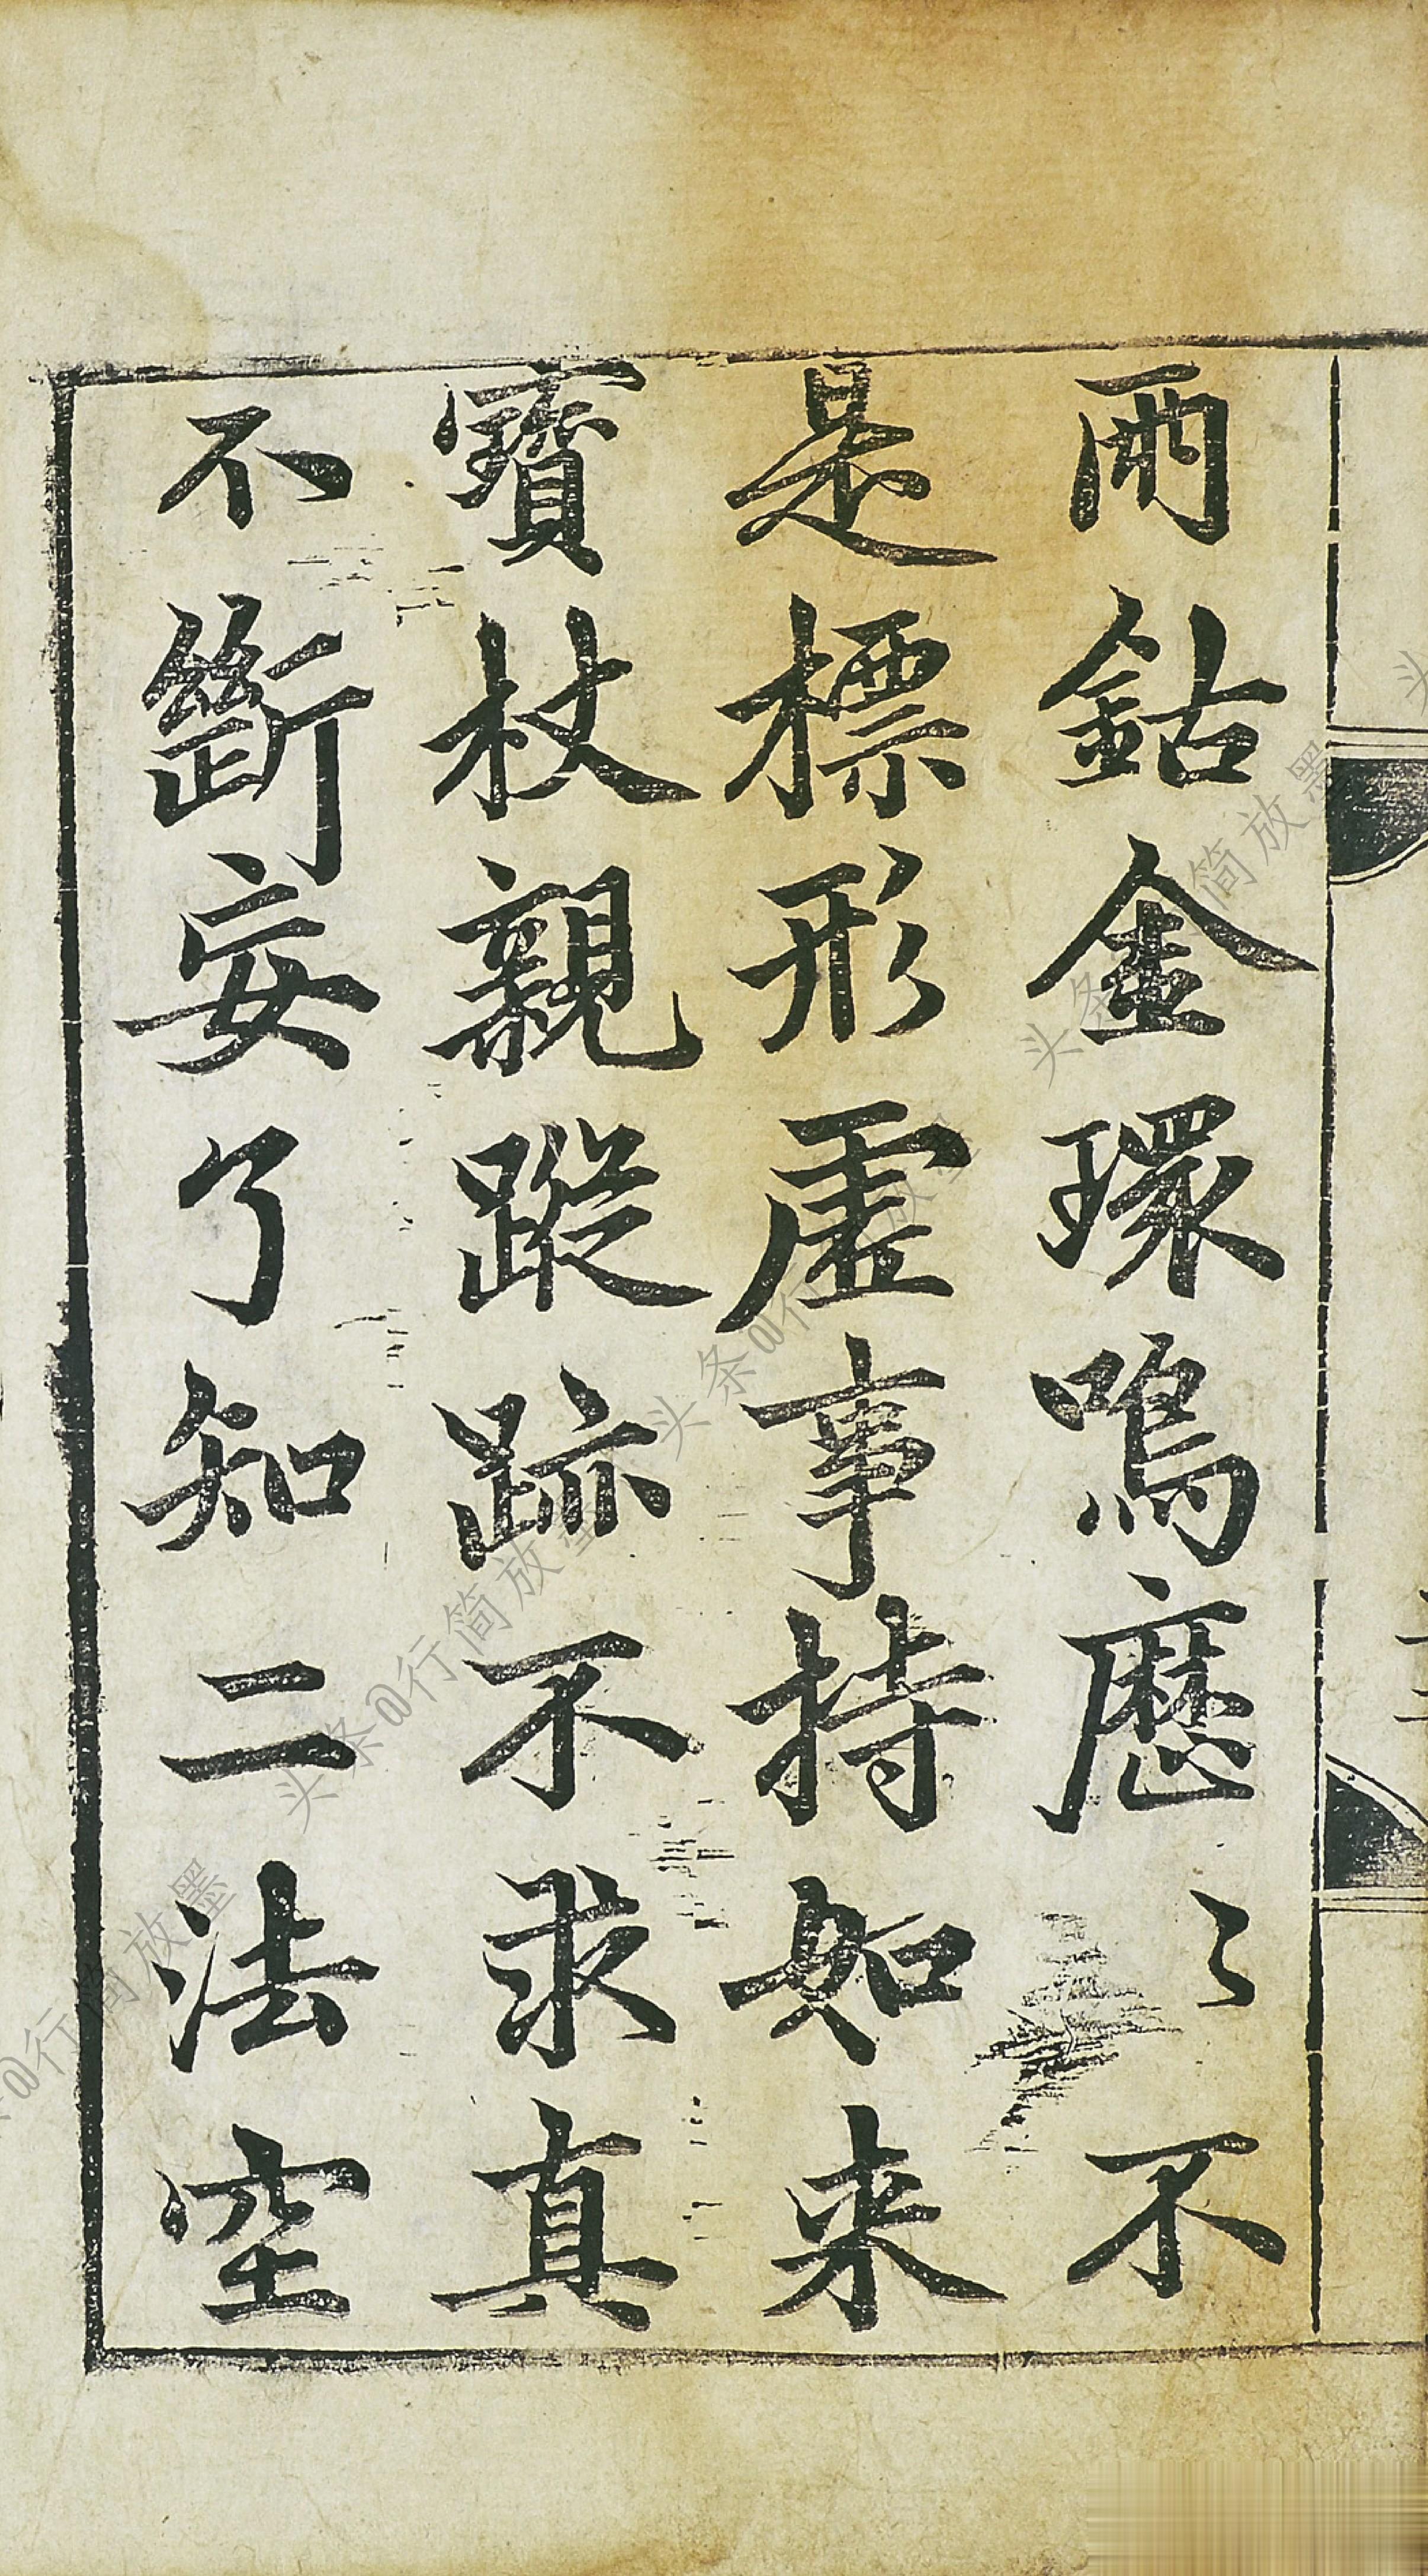 兩鈷金環鳴歷〻不
是標形虛事持如来
寶杖親蹤跡不求真
不斷妄了知二法空
头条@行简放墨
头条@行简放墨
头条@行简放墨